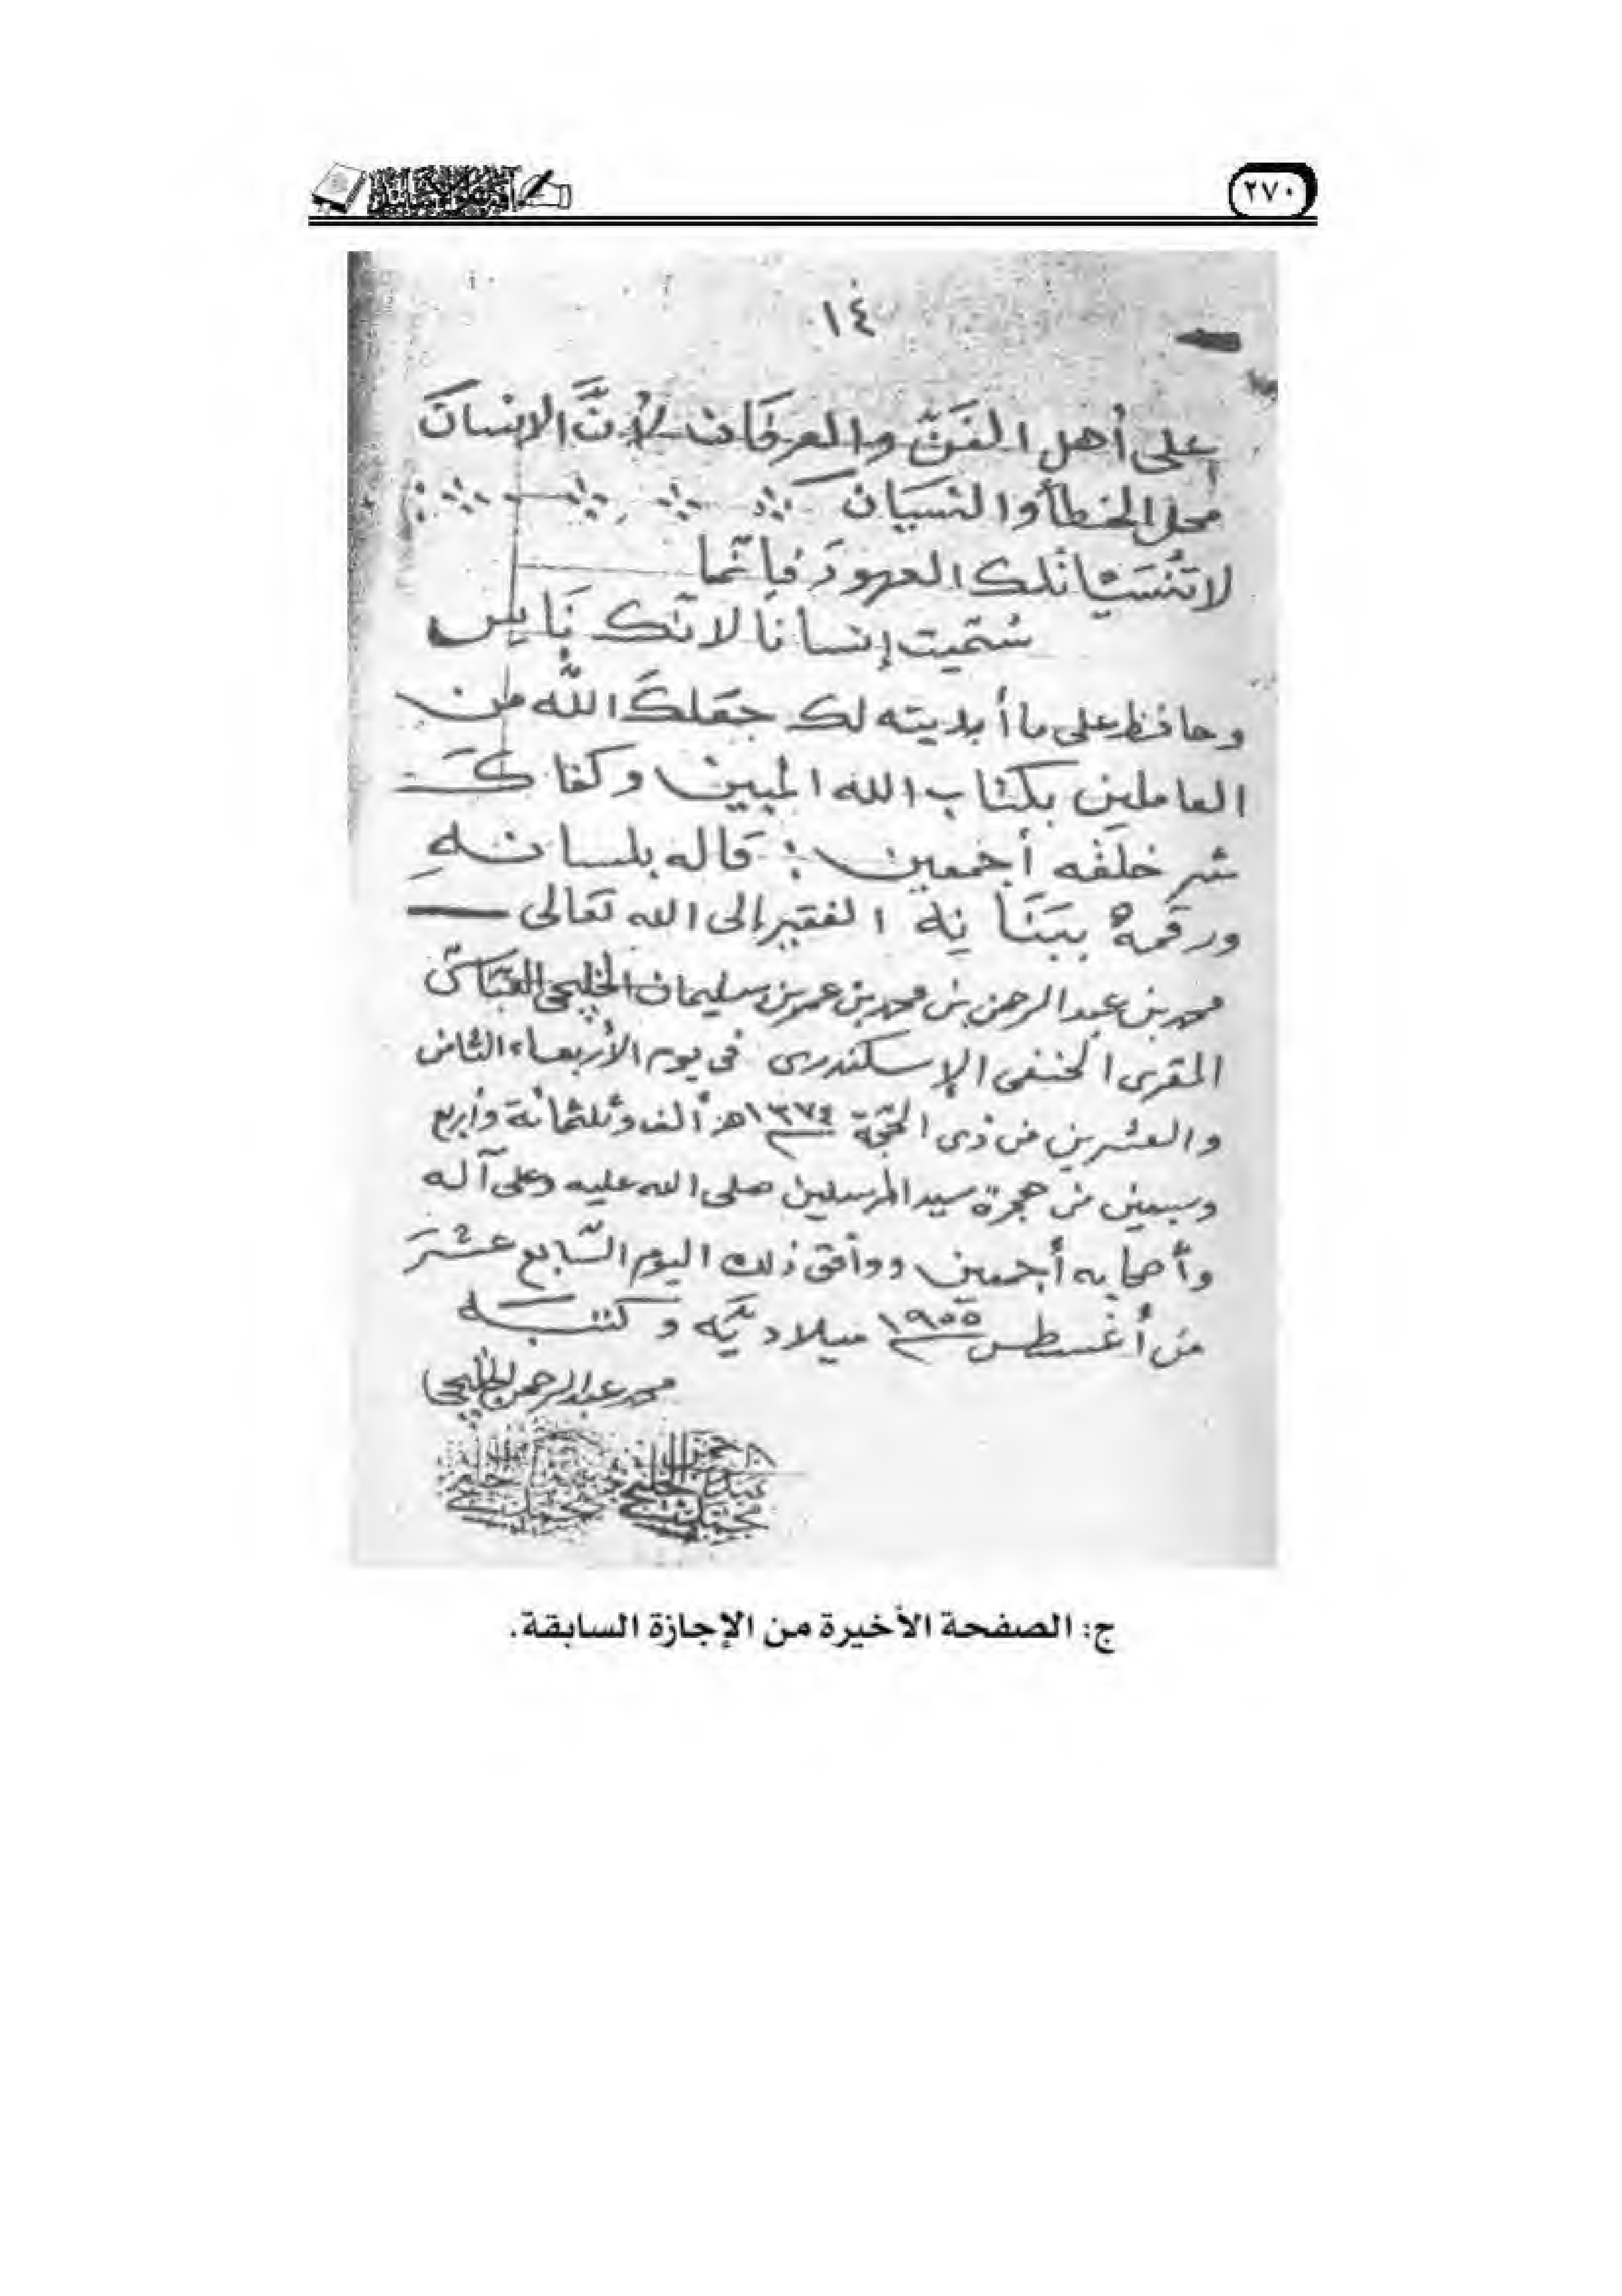 ٢٧٠
١٤
على أهل الفَنِّ والعِرفَان لأنَّ الإنسانَ
محل الخطأ والنسيان
لا تَنْسَيَنْ تلك العهودَ فإنّما
سُمّيت إنسانًا لأنّك نَاسِ
وحافظ على ما أبديته لك جعَلكَ الله من
العاملين بكتاب الله المبين وكفاكَ
شر خلقه أجمعين : قاله بلسانهِ
ورقمهُ ببَنَانِهِ الفقير إلى الله تعَالى
محمد بن عبد الرحمن بن محمد بن عمر بن سليمان الخليجي العبّاسىّ
المقرى الحنفى الإسكندرى فى يوم الأربعاء الثامن
والعشرين من ذى الحجّة ١٣٧٤هـ ألف وثلثمائة وأربع
وسبعين من هجرة سيد المرسلين صلى الله عليه وعلى آله
وأصحابه أجمعين ووافق ذلك اليوم السّابع عشَرَ
من أغسطس ١٩٥٥ ميلاديّه وكتبَه
محمد عبد الرحمن الخليجى
ج: الصفحة الأخيرة من الإجازة السابقة.